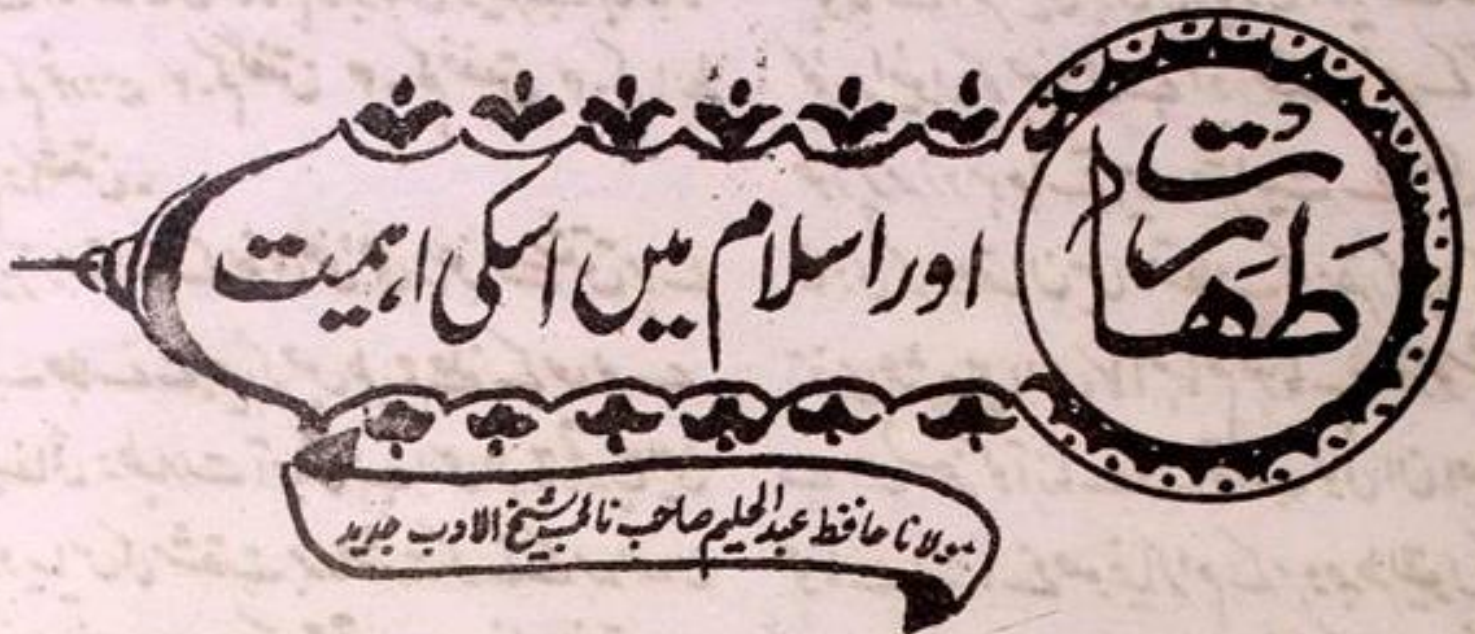 طَهَارتُ
اور اسلام میں اسکی اہمیت
مولانا حافظ عبدالحلیم صاحب نائب شیخ الادب جدید